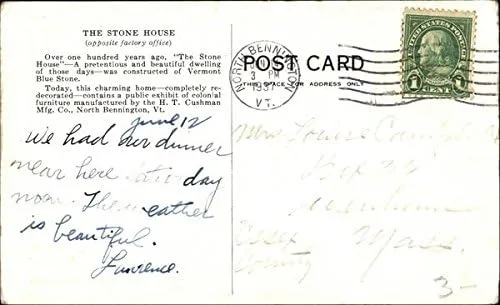 THE STONE HOUSE
(opposite factory office)
Over one hundred years ago, "The Stone
House"—A pretentious and beautiful dwelling
of those days—was constructed of Vermont
Blue Stone.
Today, this charming home—completely re-
decorated—contains a public exhibit of colonial
furniture manufactured by the H. T. Cushman
Mfg. Co., North Bennington, Vt.
June 12
We had our dinner
near here day
noon. The weather
is beautiful.
Lawrence.
POST CARD
THIS SPACE FOR ADDRESS ONLY
NORTH BENNINGTON
3 PM
VT.
UNITED STATES POSTAGE
1 CENT 1
Louise
Mass.
Essex
County
3-